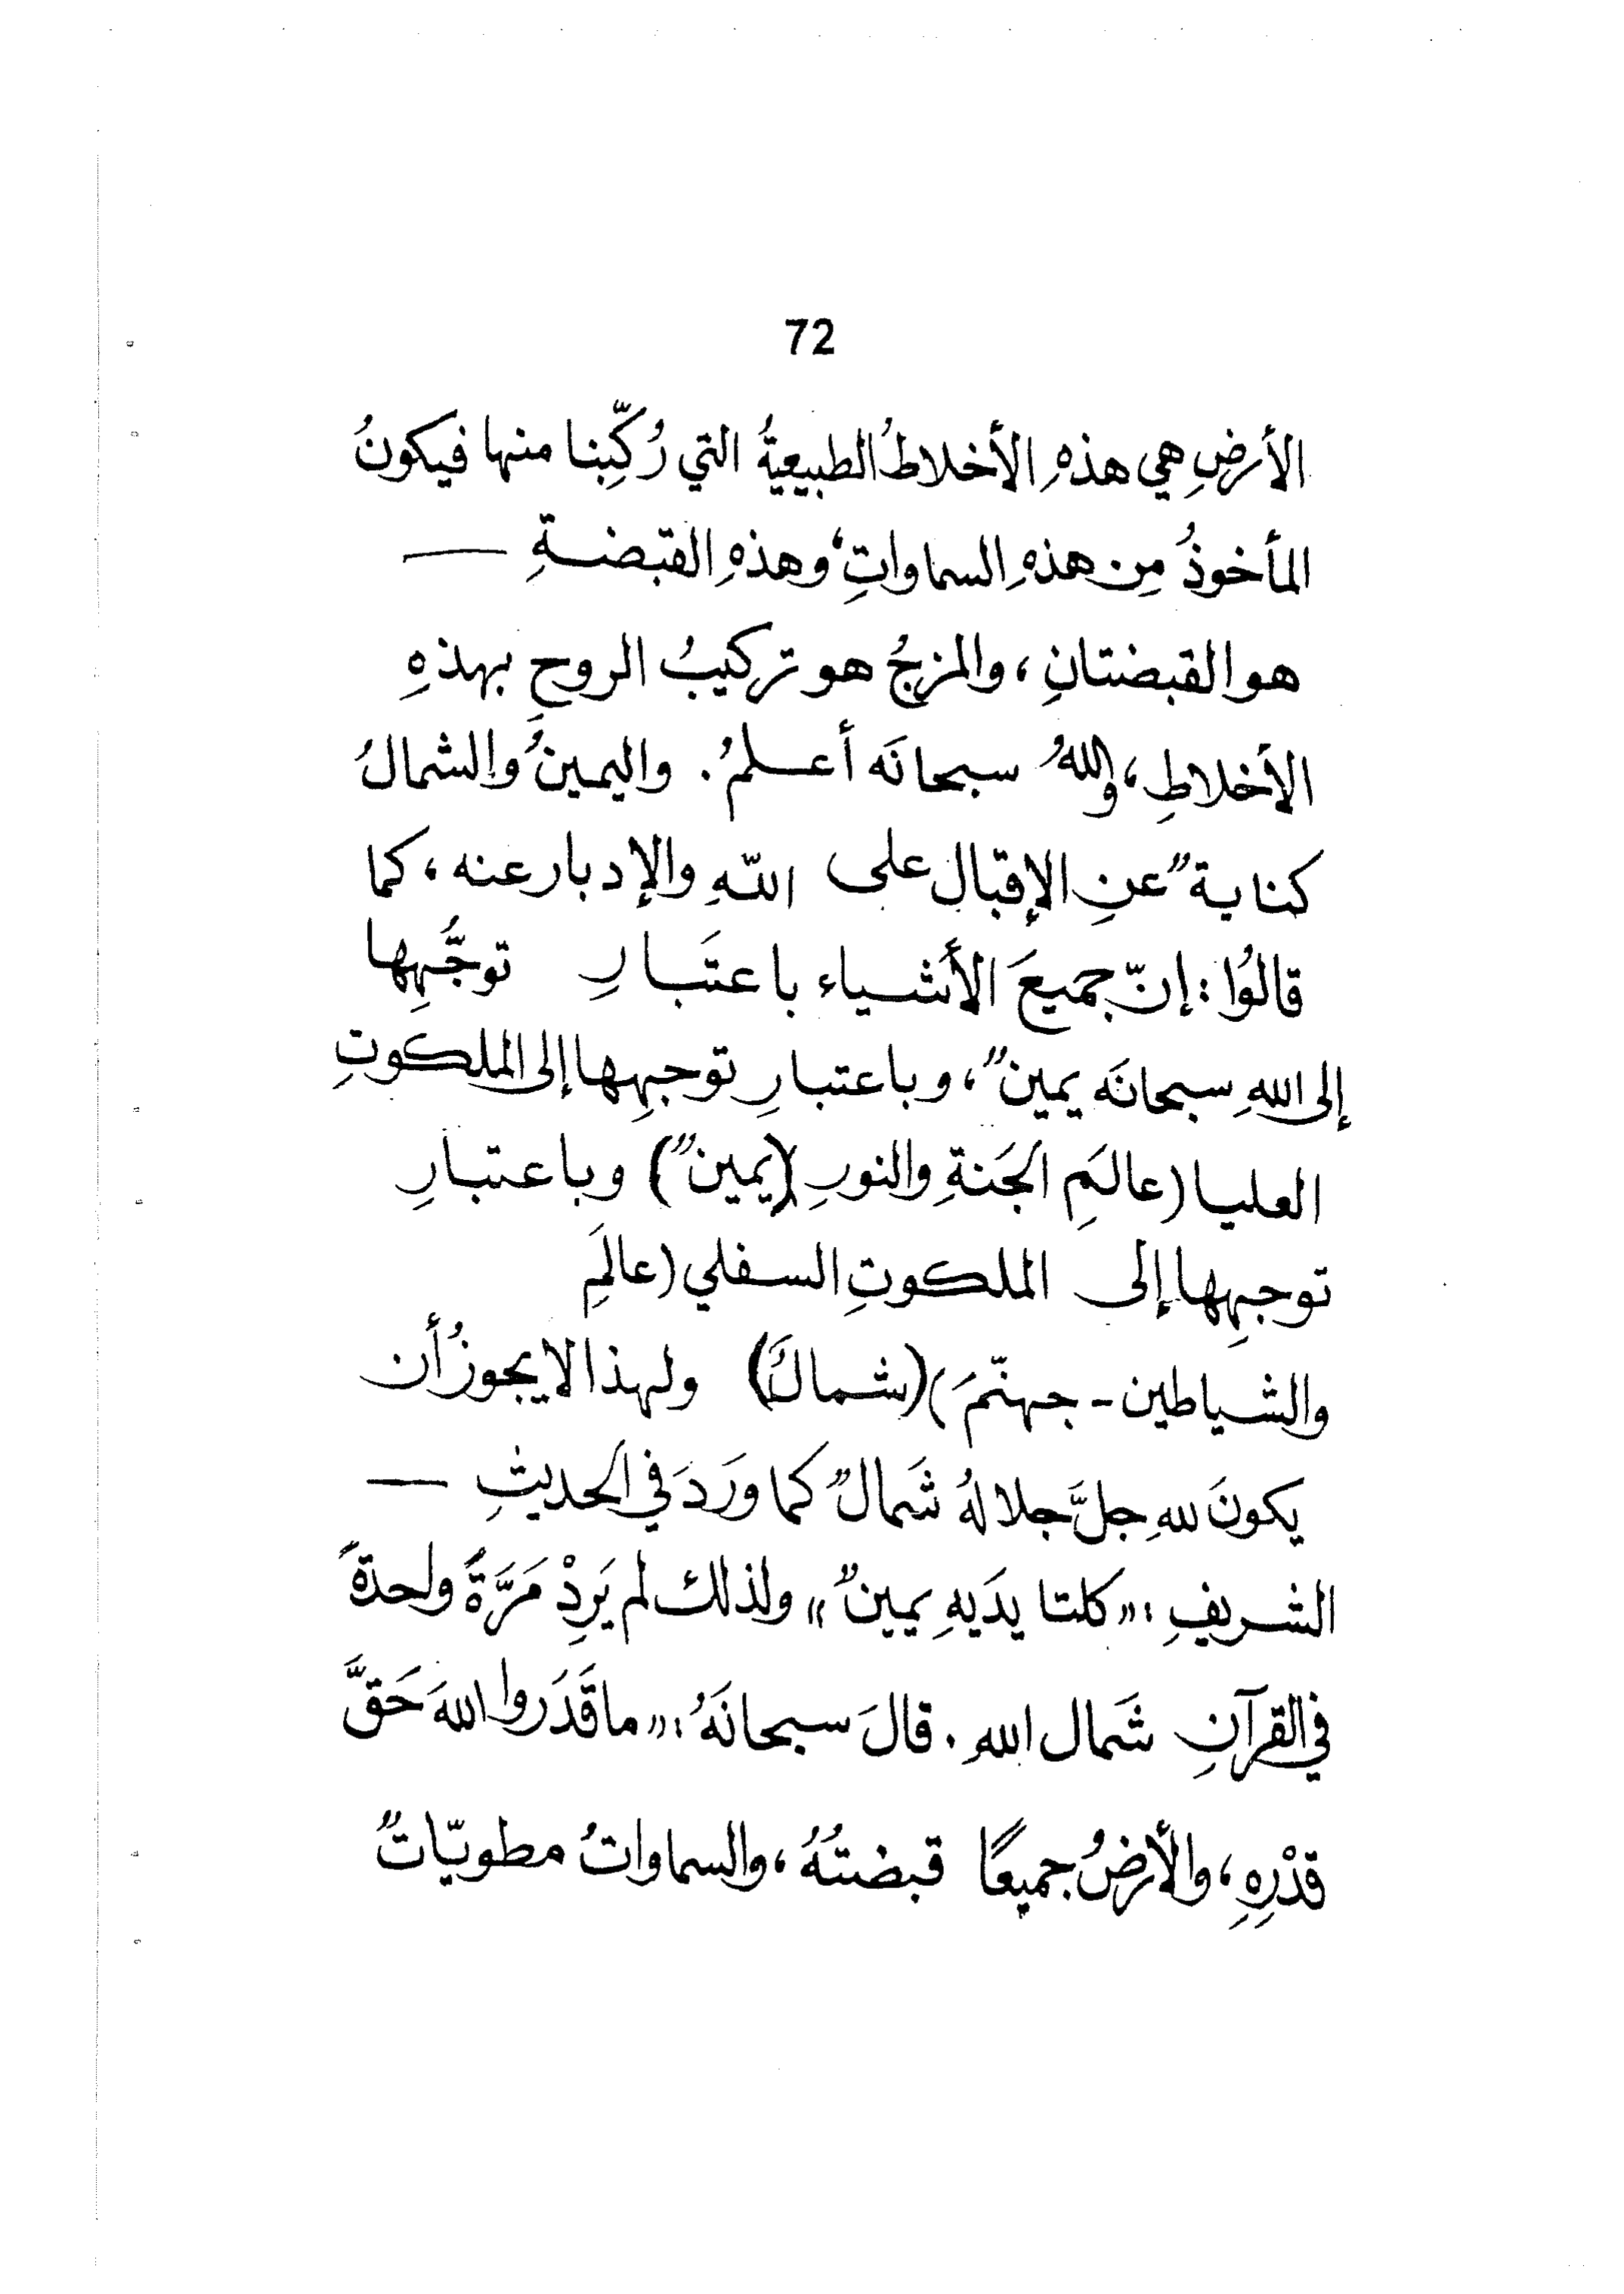 72
الأرضِ هي هذهِ الأخلاطُ الطبيعيةُ التي رُكِّبنا منها فيكونُ
المأخوذُ مِن هذهِ السماواتِ، وهذهِ القبضةِ —
هو القبضتانِ، والمزجُ هو تركيبُ الروحِ بهذهِ
الأخلاطِ، واللهُ سبحانَه أعلمُ. واليمينُ والشمالُ
كنايةٌ عنِ الإقبال على اللّهِ والإدبار عنه، كما
قالُوا: إنّ جميعَ الأشياء باعتَبارِ توجُّهِها
إلى اللهِ سبحانَه يمينٌ، وباعتبارِ توجهِها إلى الملكوتِ
العليا (عالَمِ الجَنةِ والنورِ) (يمينٌ) وباعتبارِ
توجهِها إلى الملكوتِ السفلي (عالَمِ
والشياطين - جهنّمَ) (شمالٌ) ولهذا لا يجوزُ أن
يكونَ للهِ جلَّ جلالهُ شَمالٌ كما وَرَدَ في الحديثِ —
الشريفِ: «كلتا يدَيهِ يمينٌ» ولذلك لم يَرِدْ مَرَّةً واحدةً
في القرآنِ شَمال اللهِ. قالَ سبحانَهُ: «ما قَدَروا اللهَ حَقَّ
قدْرِهِ، والأرضُ جميعًا قبضتُهُ، والسماواتُ مطويّاتٌ